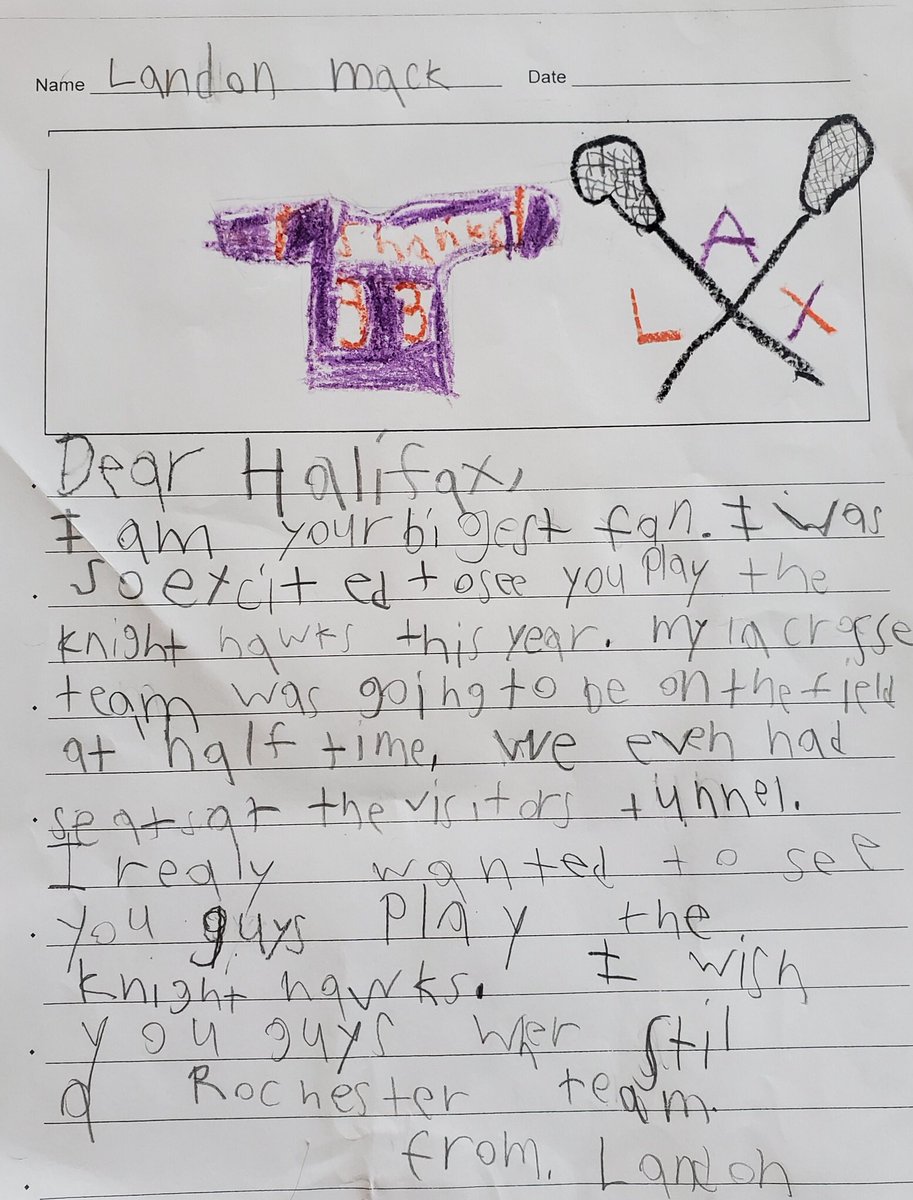 Name Landon mack Date
Shanks
33
L A X
Dear Halifax,
I am your bigest fan. I was
so excited to see you Play the
knight hawks this year. my lacrosse
team was going to be on the field
at half time, we even had
seats at the visitors tunnel.
I realy wanted to see
you guys Play the
knight hawks. I wish
you guys wher still
a Rochester team.
from, Landon